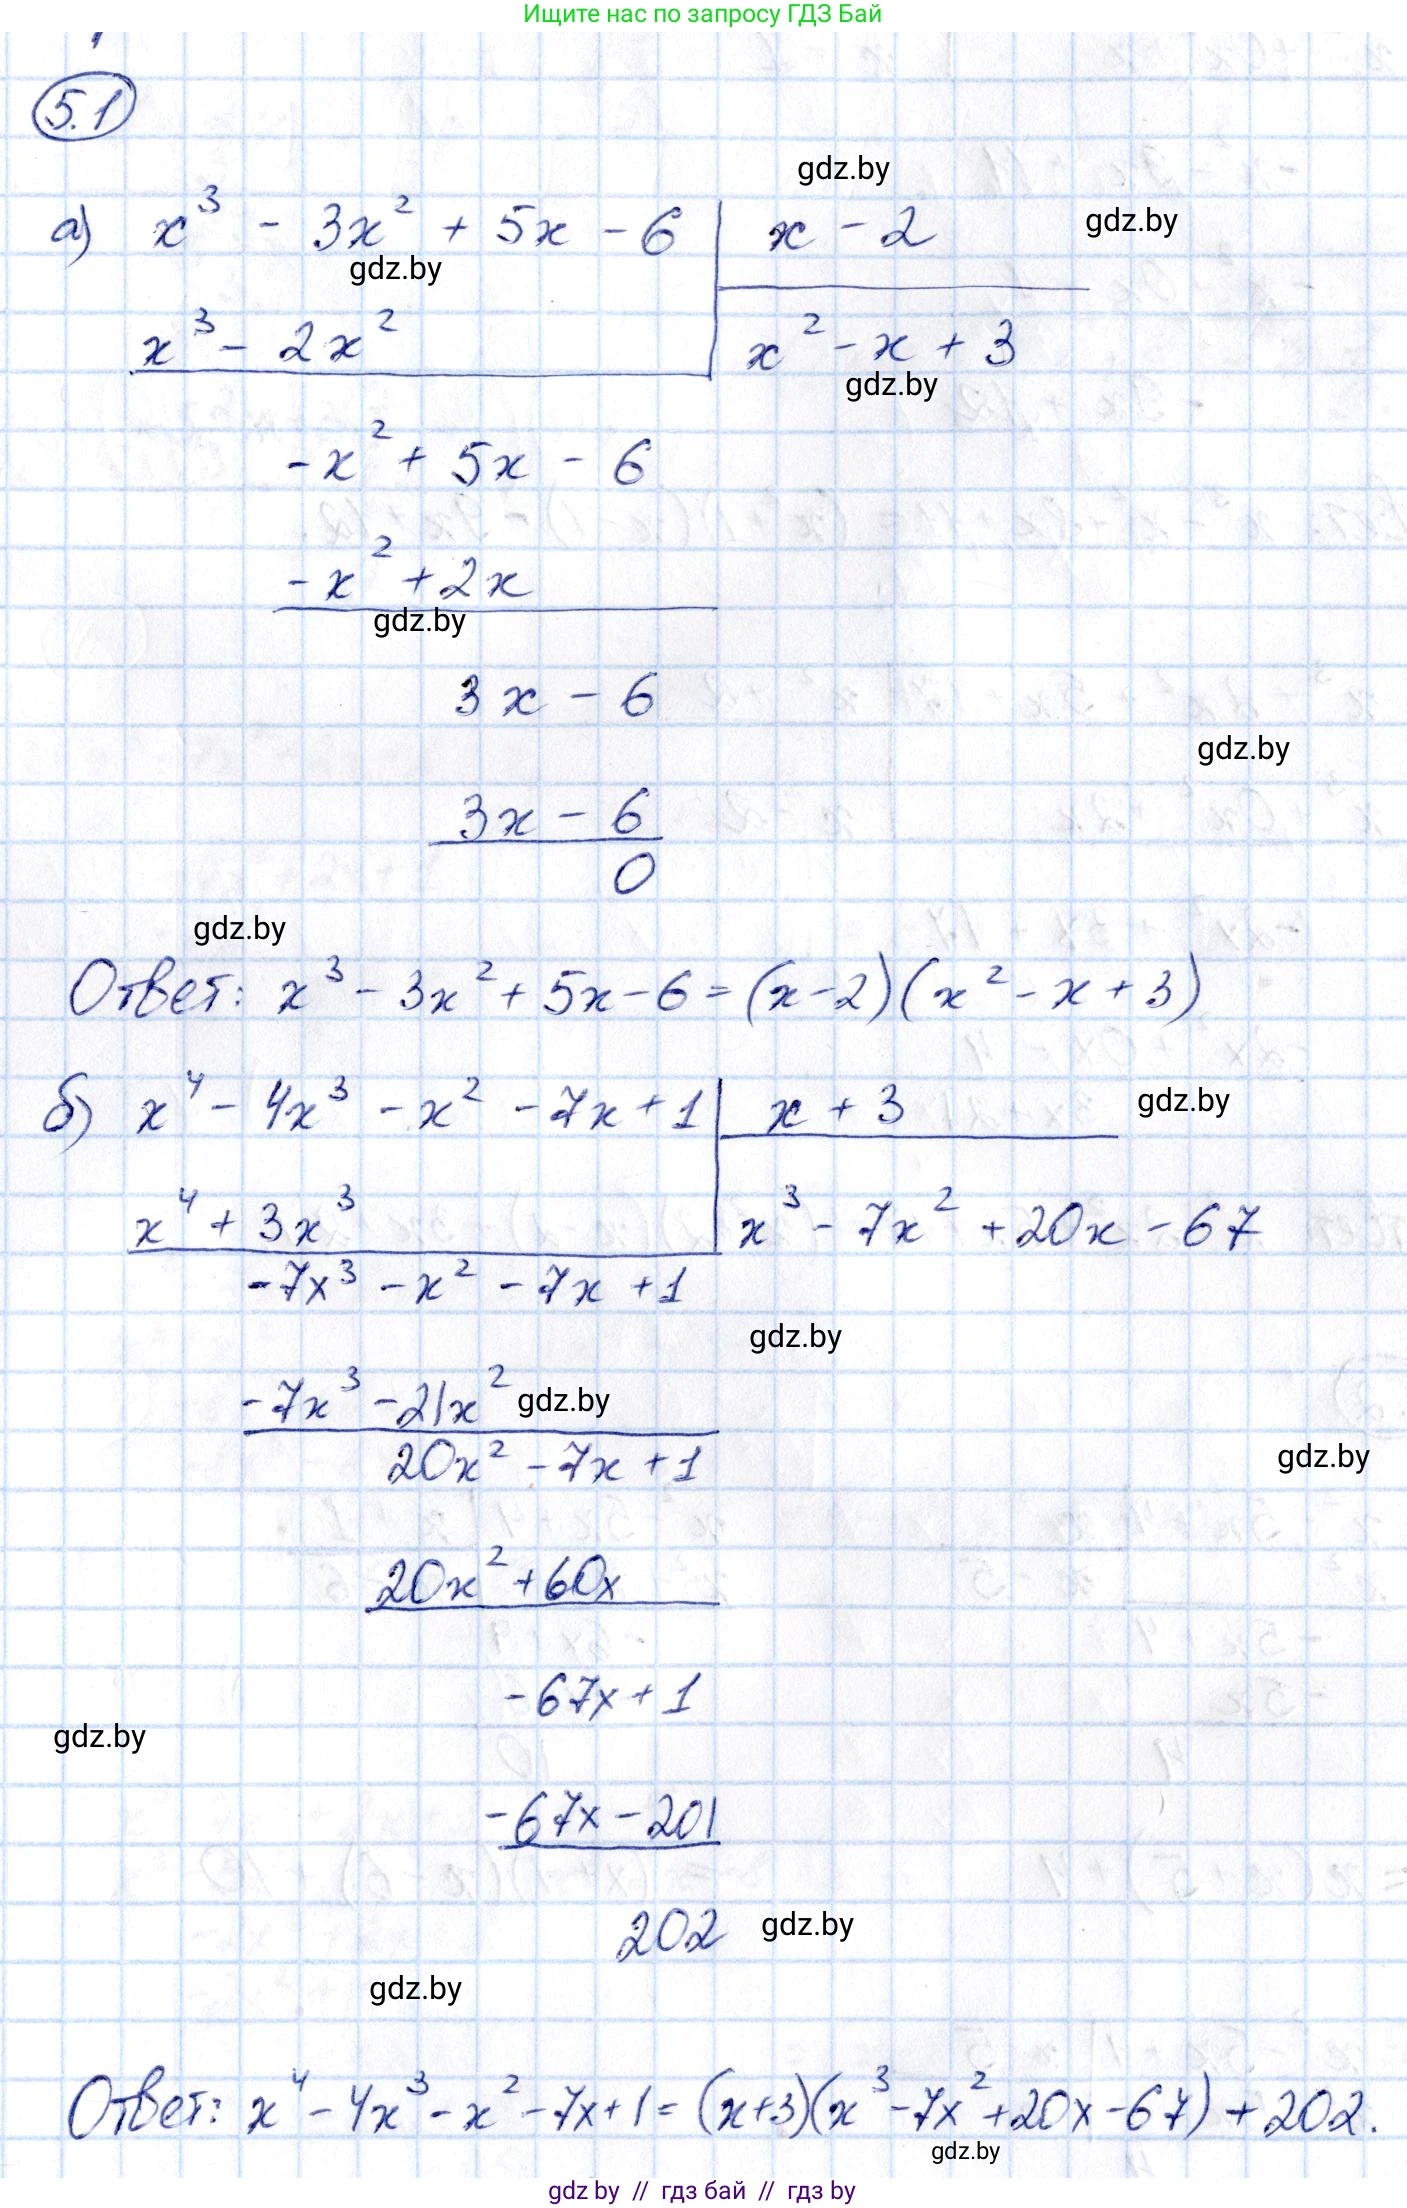 Ищите нас по запросу ГДЗ Бай
5.1
gdz.by
а) x³ - 3x² + 5x - 6 | x - 2 gdz.by
gdz.by
x³ - 2x² x² - x + 3
gdz.by
-x² + 5x - 6
-x² + 2x
gdz.by
3x - 6
gdz.by
3x - 6
0
gdz.by
Ответ: x³ - 3x² + 5x - 6 = (x - 2)(x² - x + 3)
б) x⁴ - 4x³ - x² - 7x + 1 | x + 3 gdz.by
x⁴ + 3x³ x³ - 7x² + 20x - 67
-7x³ - x² - 7x + 1
gdz.by
-7x³ - 21x² gdz.by
20x² - 7x + 1 gdz.by
20x² + 60x
-67x + 1
gdz.by
-67x - 201
202 gdz.by
gdz.by
Ответ: x⁴ - 4x³ - x² - 7x + 1 = (x+3)(x³ - 7x² + 20x - 67) + 202.
gdz.by
gdz by // гдз бай // гдз by